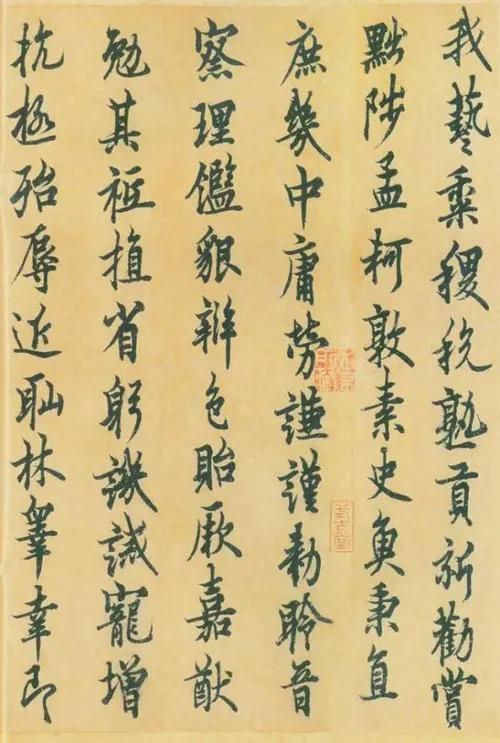 我藝黍稷稅熟貢新勸賞
黜陟孟軻敦素史魚秉直
庶幾中庸勞謙謹勅聆音
察理鑑貌辨色貽厥嘉猷
勉其祗植省躬譏誡寵增
抗極殆辱近耻林皋幸即